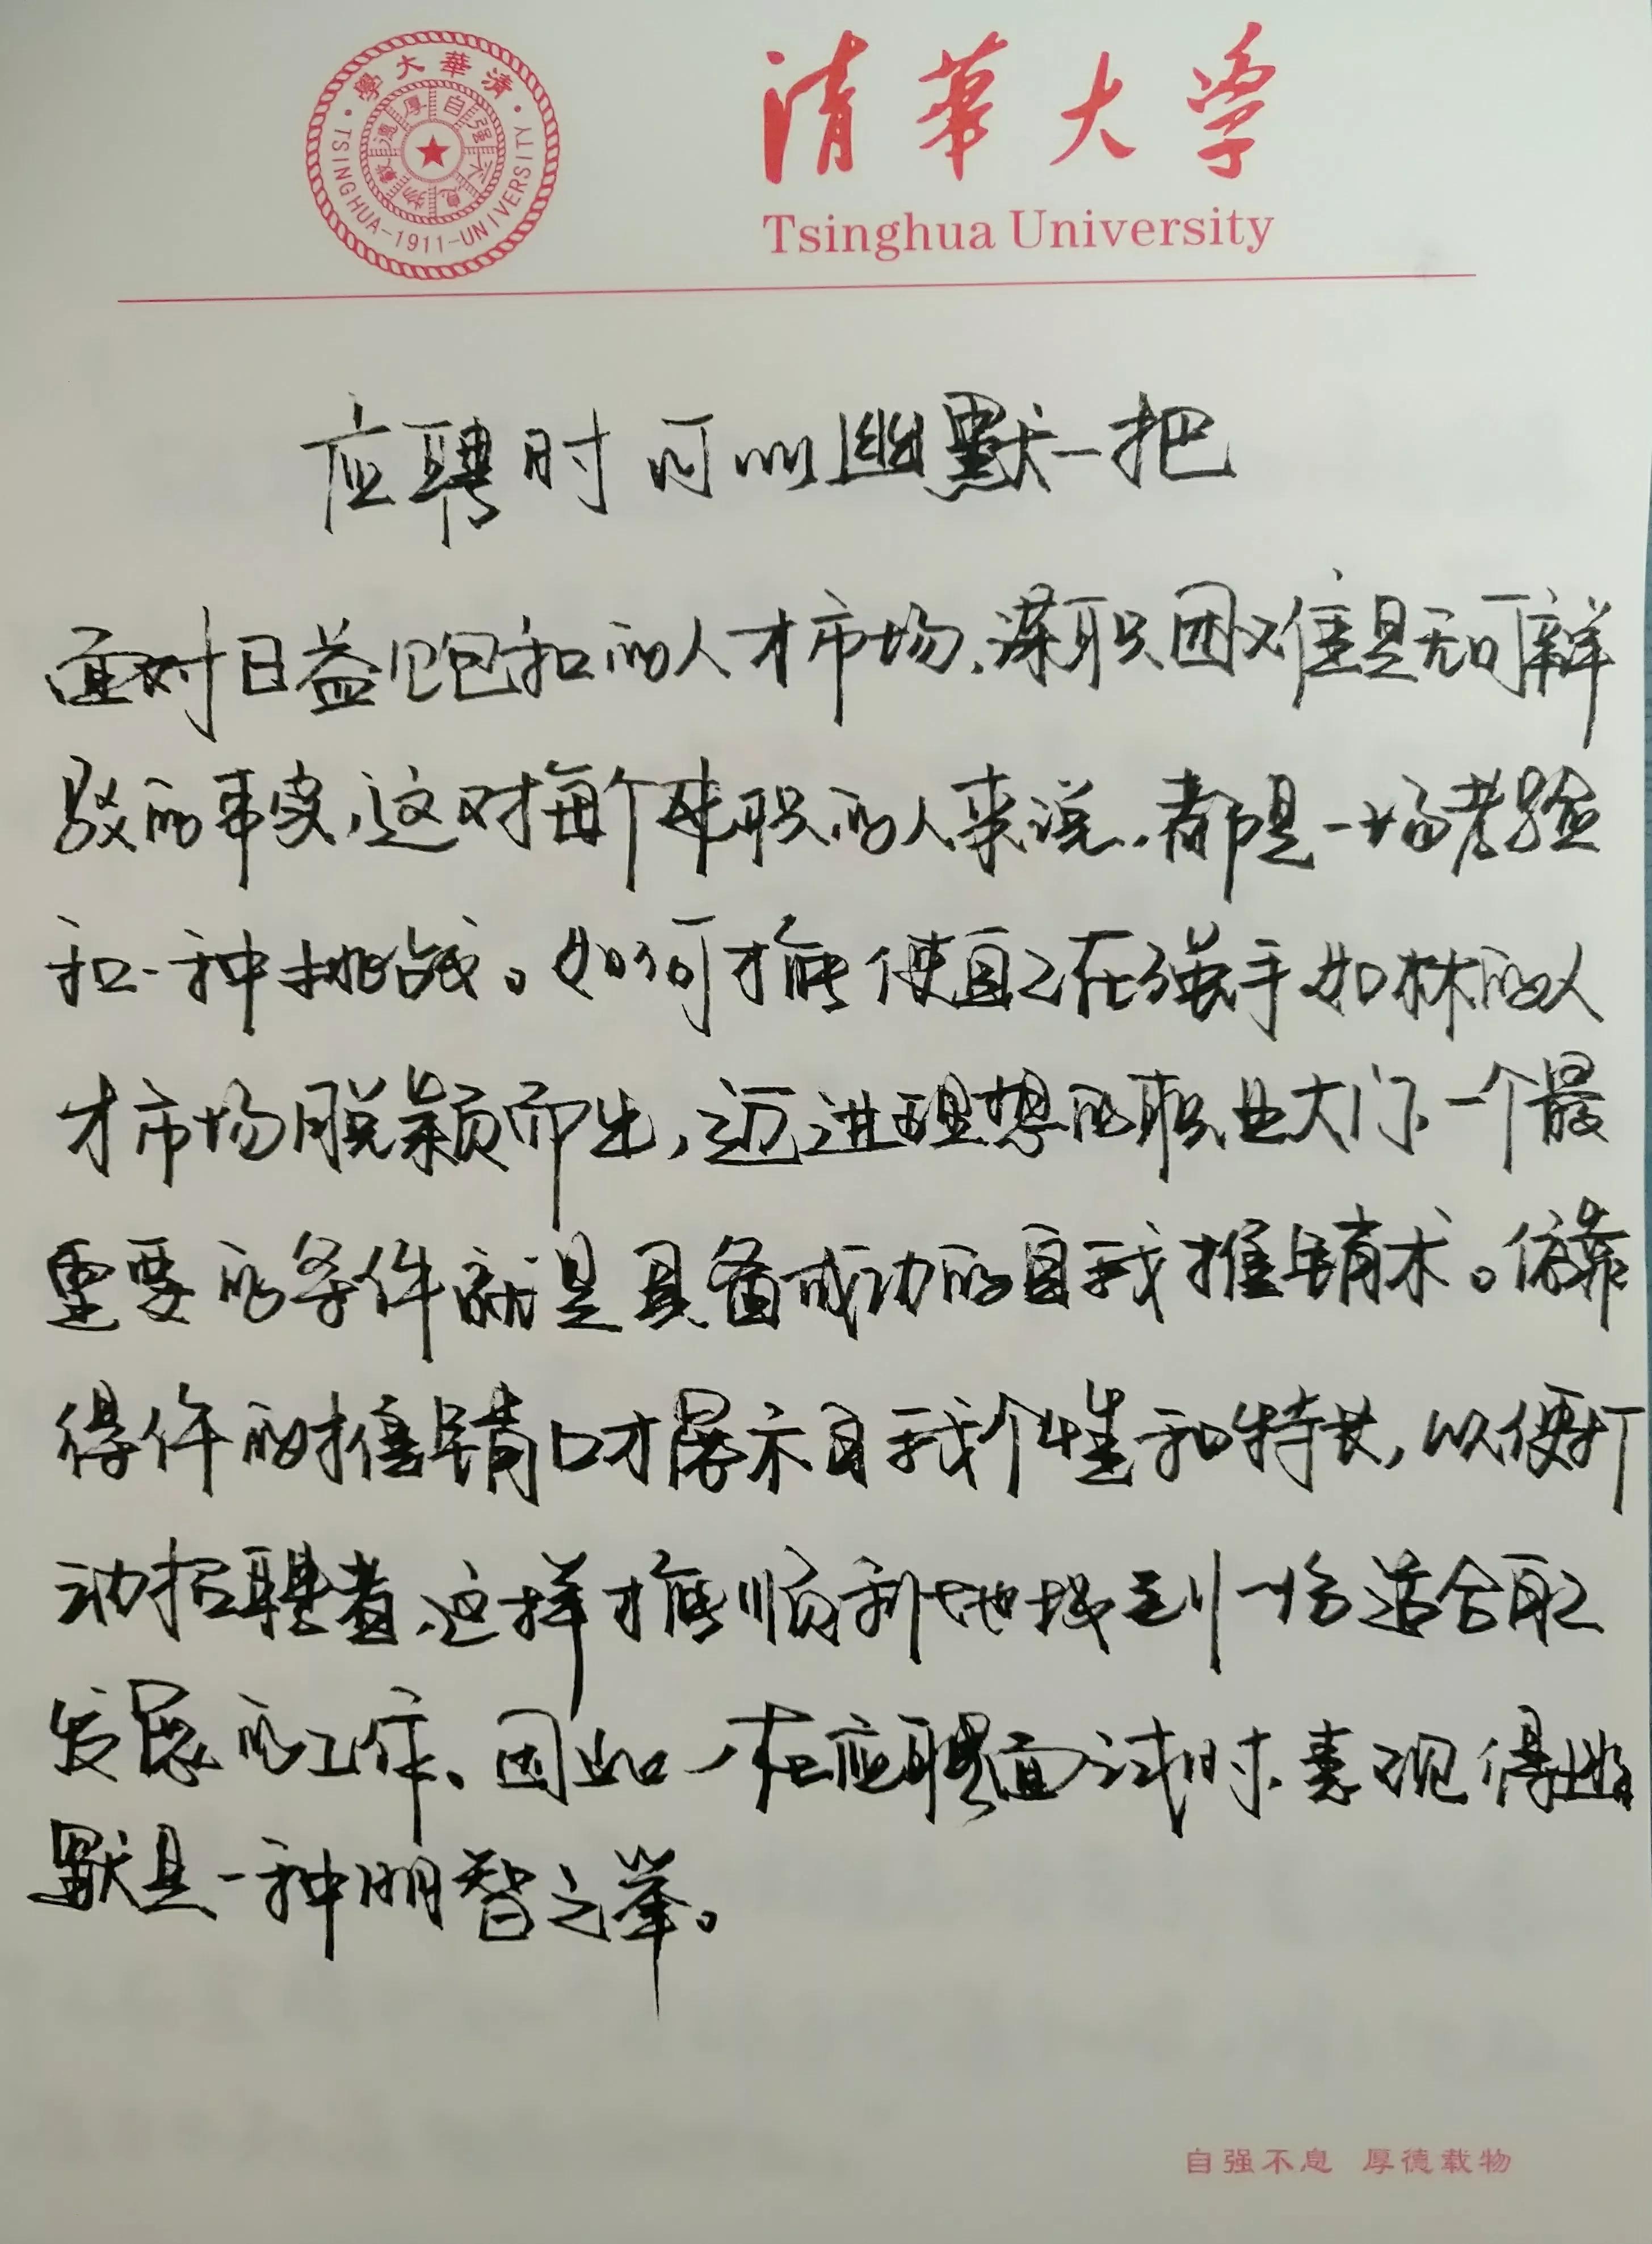 清華大學
自强不息厚德載物
TSINGHUA-1911-UNIVERSITY
清華大学
Tsinghua University
应聘时可以幽默一把
面对日益饱和的人才市场,谋职困难是无可辩
驳的事实,这对每个求职的人来说,都是一场考验
和一种挑战。如何才能使自己在强手如林的人
才市场脱颖而出,迈进理想的职业大门,一个最
重要的条件就是具备成功的自我推销术。依靠
得体的推销口才展示自我个性和特长,以便打
动招聘者,这样才能顺利地找到一份适合自己
发展的工作、因此,在应聘面试时,表现得幽
默是一种明智之举。
自强不息 厚德载物